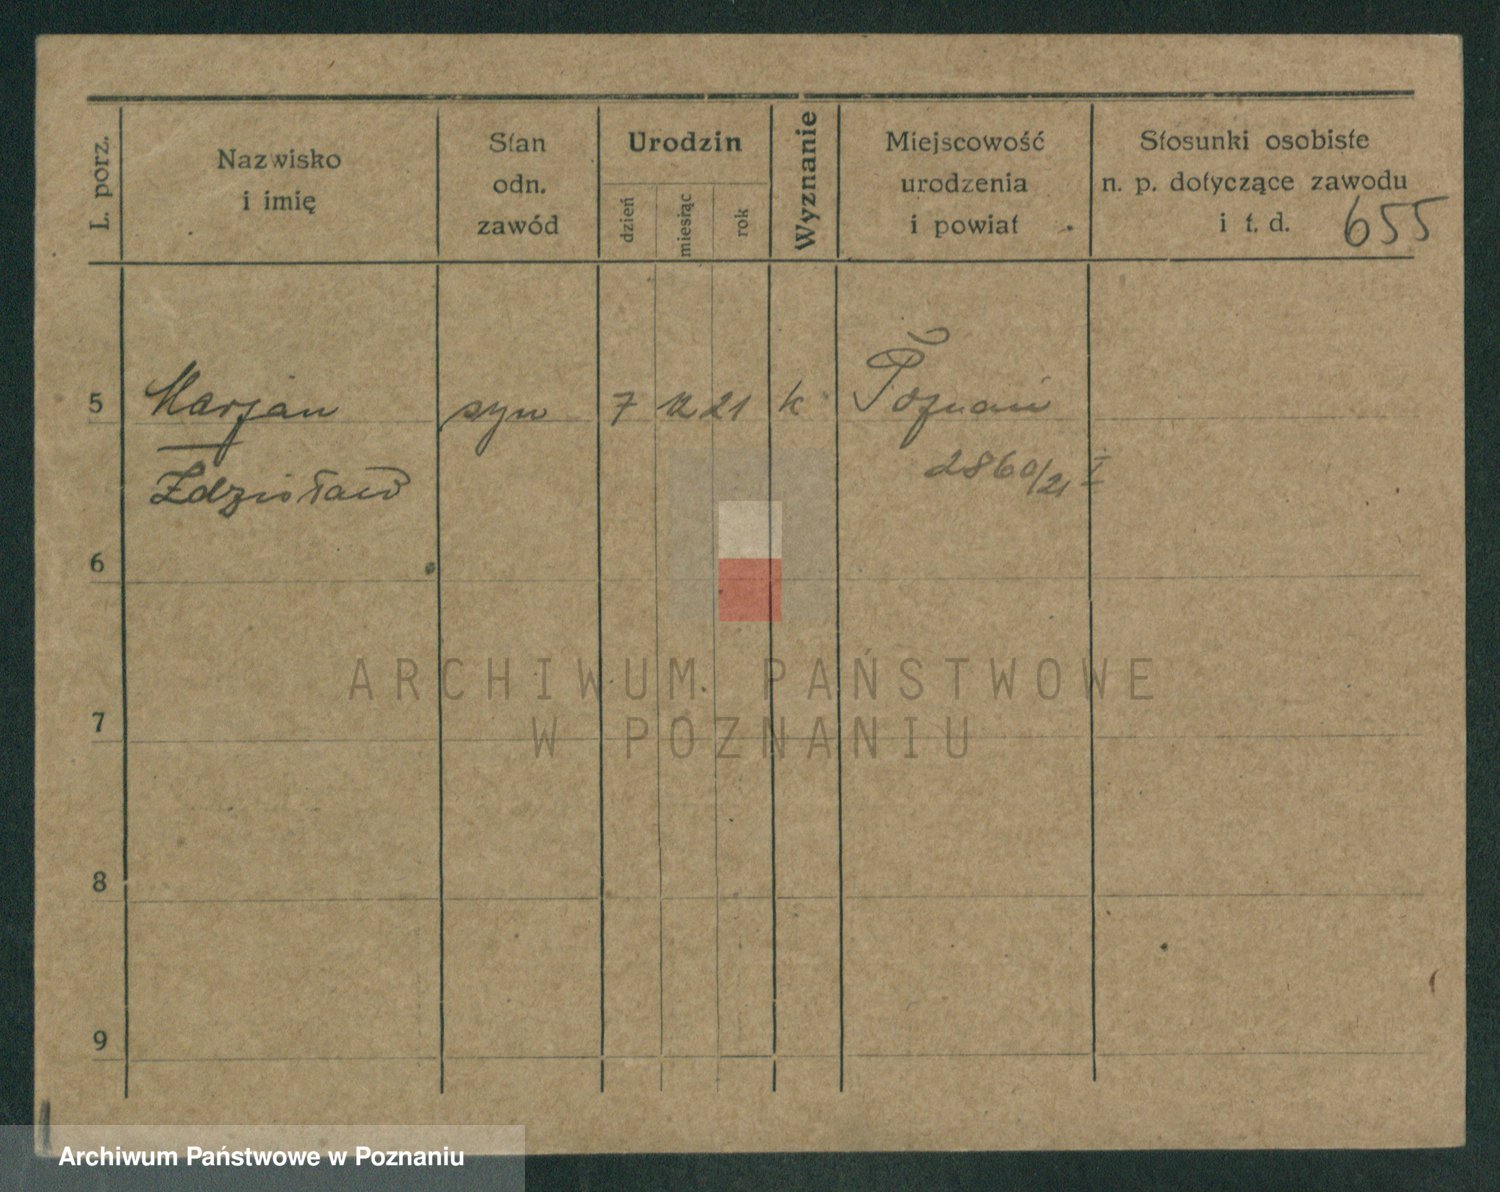 L. porz.
Nazwisko
i imię
Stan
odn.
zawód
Urodzin
dzień
miesiąc
rok
Wyznanie
Miejscowość
urodzenia
i powiat
Stosunki osobiste
n. p. dotyczące zawodu
i t. d.
655
5 Marjan syn 7 12 21 k Poznań
Zdzisław 2860/21 I
6
ARCHIWUM PAŃSTWOWE
7
W POZNANIU
8
9
Archiwum Państwowe w Poznaniu